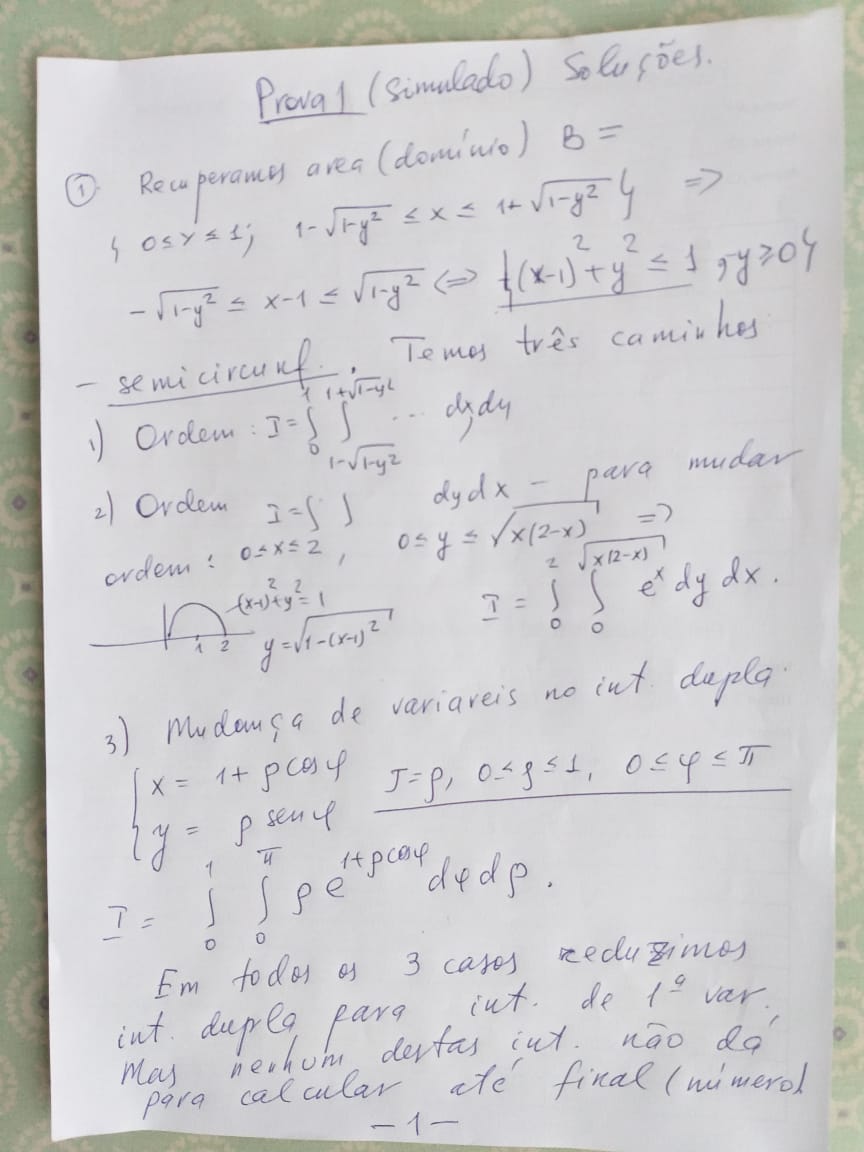 Prova 1 (simulado) Soluções.
① Recuperamos area (domínio) B =
{ 0≤y≤1; 1-√(1-y²) ≤ x ≤ 1+√(1-y²) } =>
-√(1-y²) ≤ x-1 ≤ √(1-y²) <=> {(x-1)²+y² ≤ 1, y≥0}
- semicircunf. . Temos três caminhos
1) Ordem : I = ∫₀¹ ∫_{1-√(1-y²)}^{1+√(1-y²)} ... dxdy
2) Ordem I = ∫ ∫ dydx - para mudar
ordem : 0≤x≤2, 0≤y≤√(x(2-x)) =>
(x-1)²+y²=1
1 2 y=√(1-(x-1)²)
I = ∫₀² ∫₀^{√(x(2-x))} eˣ dy dx.
3) Mudança de variaveis no int. dupla.
{ x = 1+ρcosφ
J=ρ, 0≤ρ≤1, 0≤φ≤π
y = ρ senφ
I = ∫₀¹ ∫₀^π ρ e^{1+ρcosφ} dφdρ.
Em todos os 3 casos reduzimos
int. dupla para int. de 1ª var.
Mas nenhum destas int. não dá
para calcular até final (número)
-1-